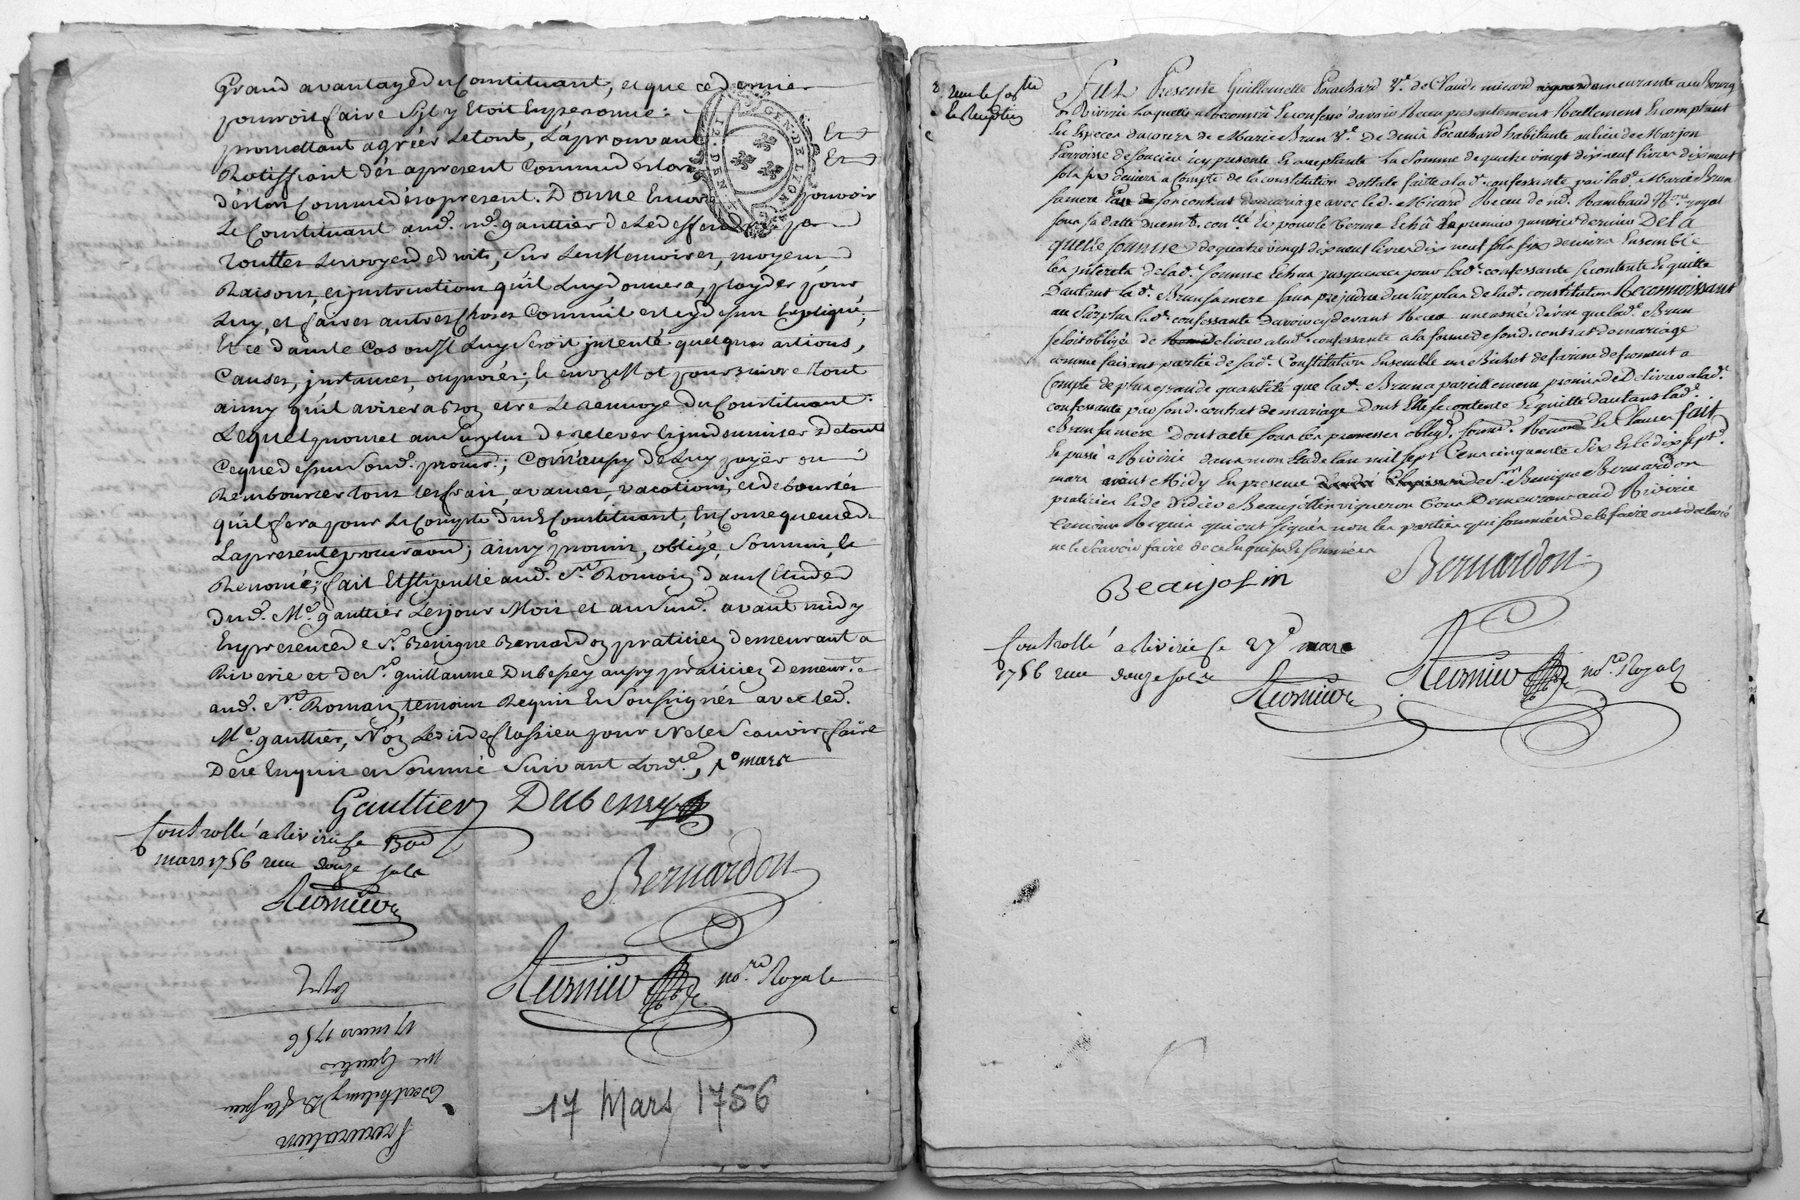 Grand avantage du Constituant, et que ce dernier
pourroit faire S'jl y Etoit En personne;
promettant agréer Letout, L'aprouvant Et
Ratiffiant dés apresent Comme déslors Et
déslors Comme désapresent. Donne Encore pouvoir
Le Constituant aud. me. gauttier de Ledeffendre par
Touttes Les voyes de droits, Sur Les Memoires, moyens,
Raisons, et jnstructions qu'il Luy donnera, playder pour
Luy, et faires autres Choses Comm'il est cy dessus Expliqué,
Et ce dans le Cas ou Jl Luy Seroit jntenté quelques actions,
Causes, jnstances, ou procés; le envers Et poursuivre tout
ainsy qu'il avisera Bon etre Le Renvoye du Constituant.
Lequel promet au Surplus de relever Et jndemniser de tout
Ceque dessus Sond. procur.; Comm'aussy de Luy payer ou
Rembourser tous les frais, avances, vacations, et debourses
qu'il fera pour Le Compte dud. Constituant, En Consequence de
La presente procuration; ainsy promis, obligé, Soumis, &
Renoncé; fait Et Stipullé aud. St. Romain dans L'Etude
dud. Me. gauttier Les jour Mois et an Susd. avant midy
En presence de Sr. Benigne Bernardon praticien demeurant a
Riverie et de Sr. guillaume Dubessey aussy praticien demeurt.
aud. St. Roman, temoins Requis Et Soussignés avec led.
Me. gauttier, Non Led. de flassieu pour Ne le Scavoir faire
De ce Enquis et Sommé Suivant L'ord.ce, 17e mars
Gaulttier Dubessey
Controllé a Riverie ce
mars 1756 reçu douze sols
Bernardon
no.re Royale
17 mars 1756
me Gautier
Barthelemy De flassieu
Procuration
17 Mars 1756
Fut Presente Guillemette Pocachard Ve. de Claude micard demeurante au Bourg
de Riverie Laquelle a Reconnu Et confessé d'avoir Receu presentement Reellement Et comptant
En Especes d'acours de Marie Brun Ve. De Denis Pocachard habitante au lieu de Marjon
Parroisse de Soucieu icy presente Et acceptante La Somme de quatre vingt dix neuf livres dix neuf
sols six deniers a Compte de la constitution dottale faitte a lad. confessante par lad. Marie Brun
sa mere Par son contrat de mariage avec led. Micard Receu de me. Rambaud no.re royal
sous sa datte duement con.llé Et pour le terme Echû Le premier janvier dernier De La
quelle Somme de quatre vingt dix neuf livres dix neuf sols six deniers Ensemble
les jnterets de lad. somme Echus jusqu'a ce jour lad. confessante se contente Et quitte
D'autant lad. Brun sa mere sans prejudice du Surplus de lad. constitution Reconnoissant
au Surplus lad. confessante d'avoir cy devant Receu une asnée de vin que lad. Brun
s'etoit obligé de delivrer a lad. confessante a la forme de sond. contrat de mariage
comme faisant partie de sad. Constitution Ensemble un Bichet de farine de froment a
Compte de plus grande quantité que lad. Brun a pareillement promis de Delivrer a lad.
confessante par sond. contrat de mariage Dont Elle se contente Et quitte d'autant lad.
Brun sa mere Dont acte sous les promesses oblig. soum. Renonc. Et Clauses fait
Et passé a Riverie dans mon Etude L'an mil sept Cens cinquante Six Et le dix sept.
mars avant Midy En presence de Sr. Benigne Bernardon
praticien Et de Didier Beaujollin vigneron Tous Demeurans aud. Riverie
temoins Requis qui ont signés non les parties qui sommées de le faire ont declaré
ne le Scavoir faire de ce Enquises Et sommées
Beaujolin Bernardon
Controllé a Riverie ce 27e mars
1756 reçu douze sols
no.re Royal